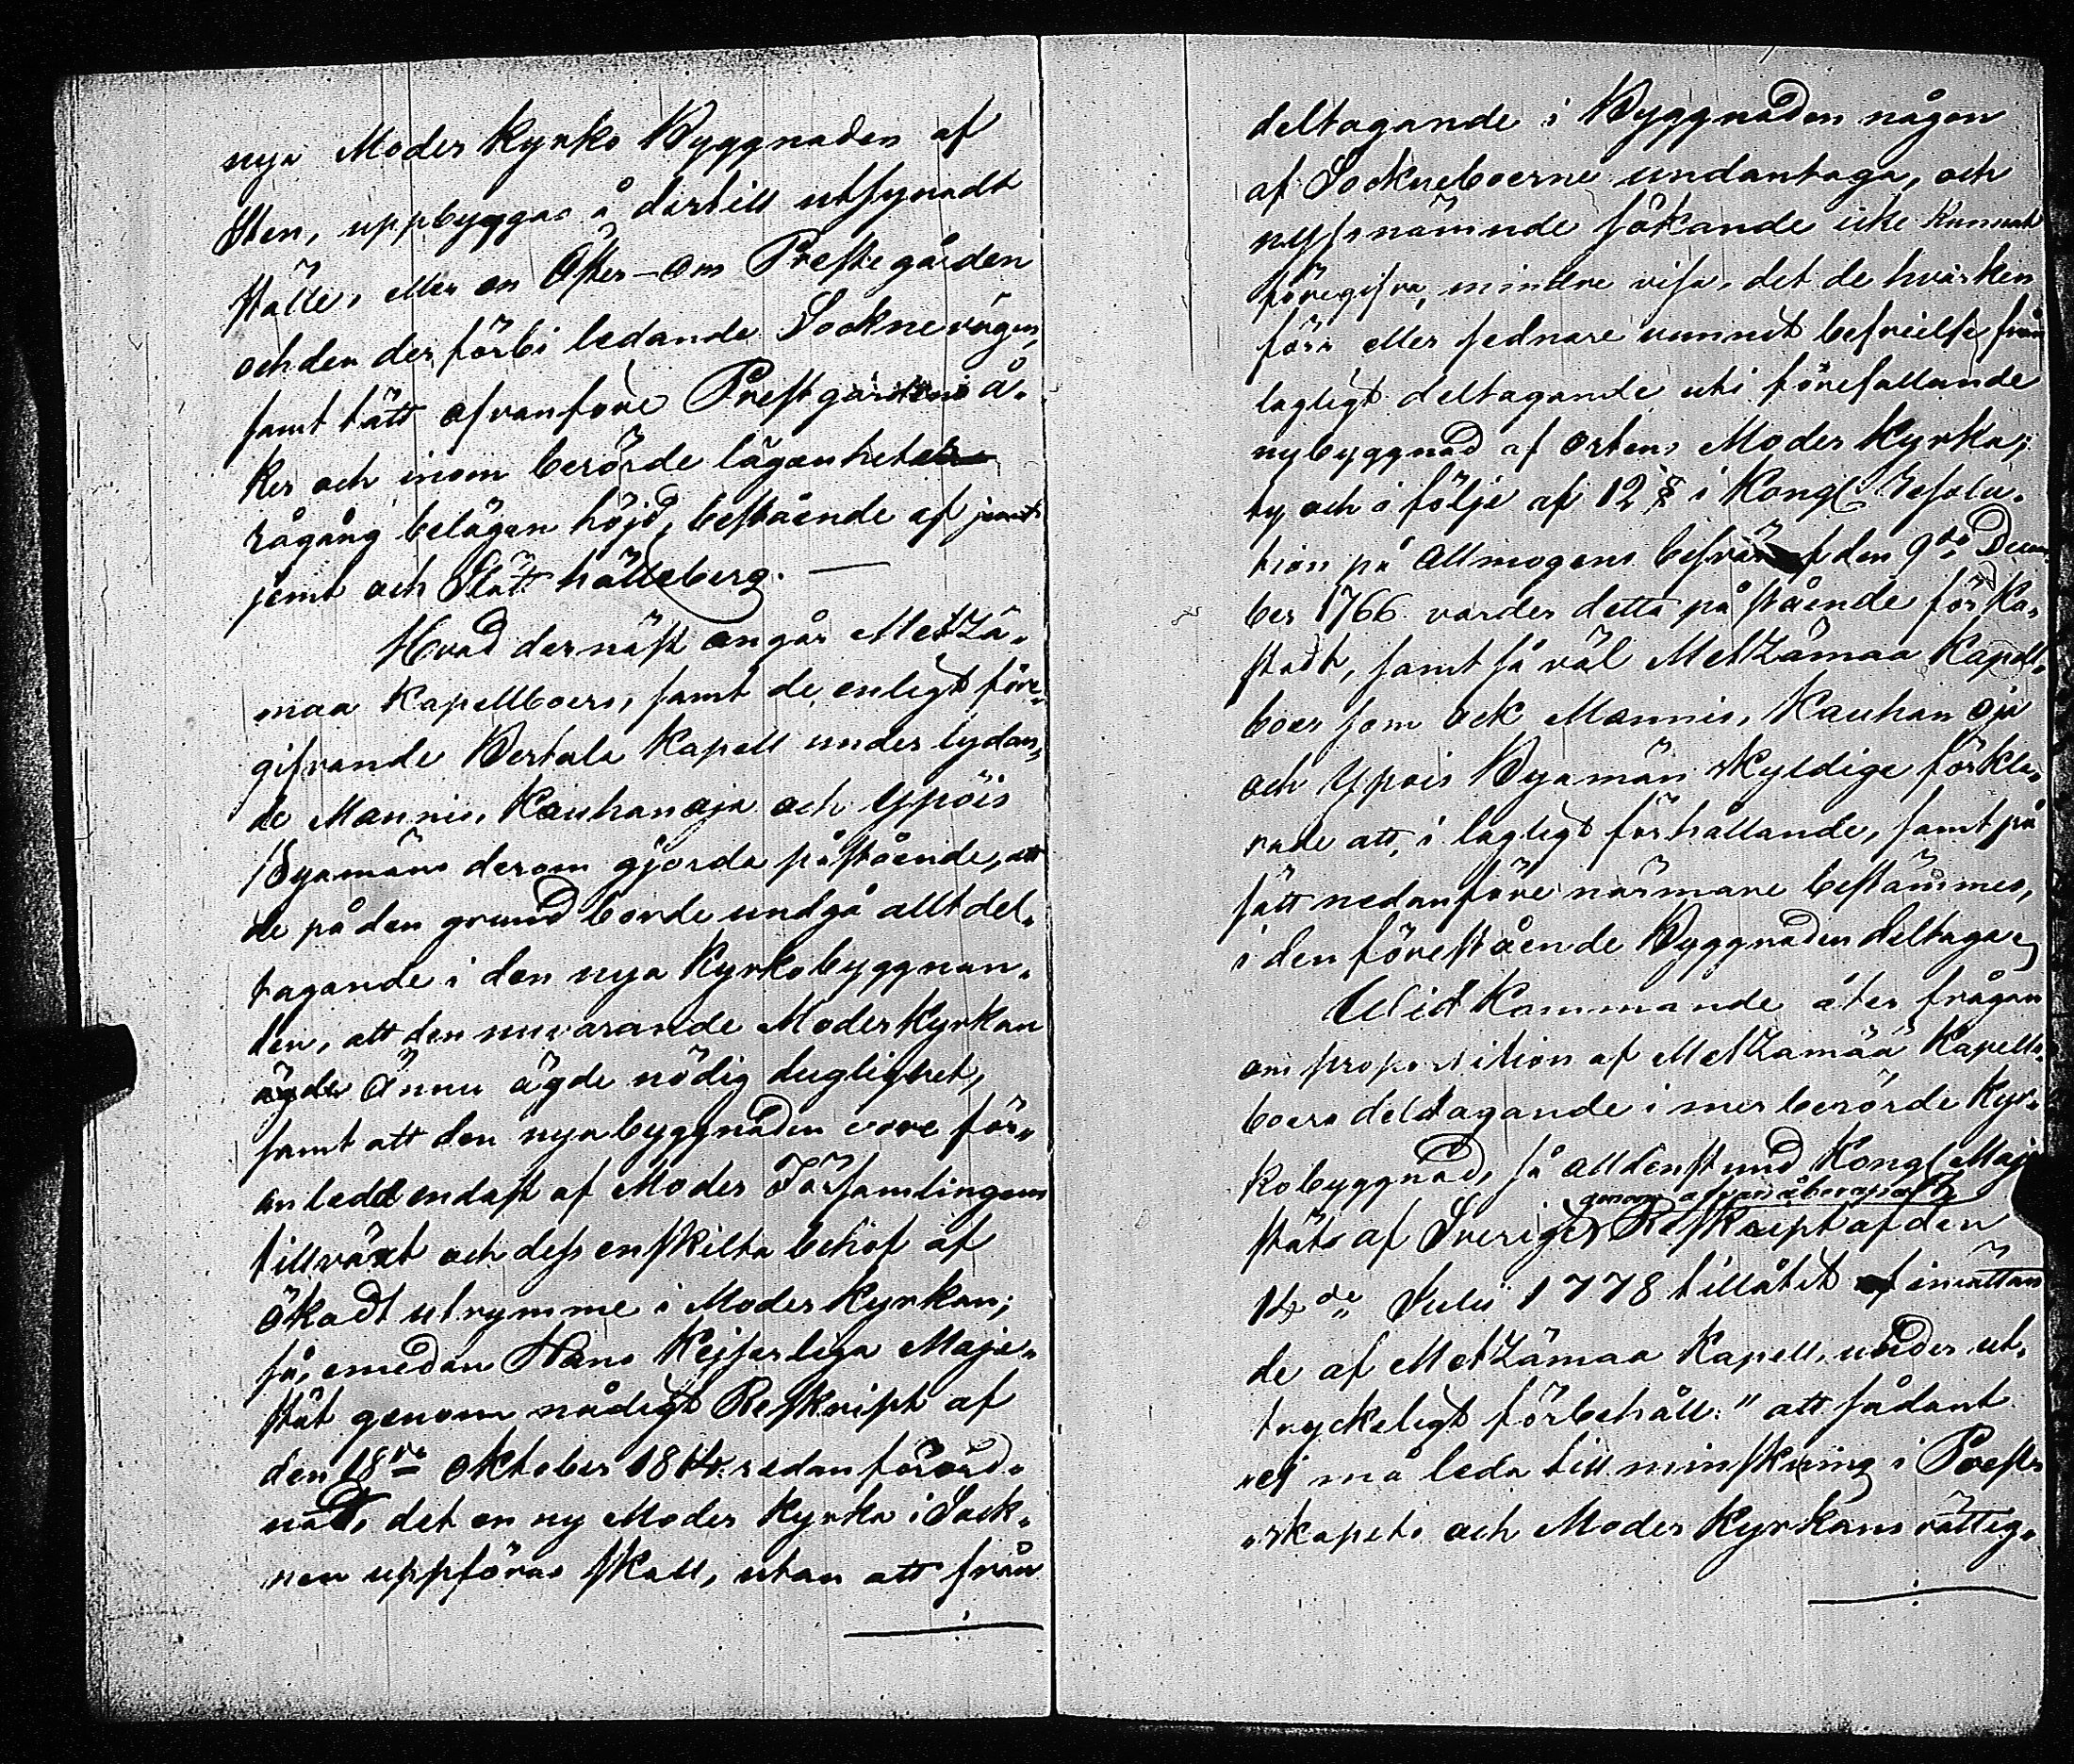 nya Moder Kyrko Byggnaden af
Sten, uppbyggas å dertill utsynadt
ställe, eller en Öster-om Prestegården
och den der förbi ledande Sockne vägen,
samt tätt ofvanföre Prestgårdens å„
ker och inom berörde lägenheters
rågång belägen höjd, bestående af jemt
jemt och Slätt hälleberg. —
Hvad dernäst angår Metzä„
maa Kapellboers, samt de, enligt före„
gifvande Vertala Kapell under lydan„
de Mannis, Kauhanoja och Ypöis
Byamäns derom gjorda påstående, att
de på den grund borde undgå allt del„
tagande i den nya Kyrkobyggnan„
den, att den nuvarande Moder Kyrkan
ägde ännu ägde nödig duglighet,
samt att den nya byggnaden vore för„
anledd endast af Moder Församlingens
tillväxt och dess enskilta behof af
ökadt utrymme i Moder Kyrkan;
så, emedan Hans Kejserliga Maje„
stät genom nådigt Reskript af
den 18de Oktober 1814. redan förord„
nadt, det en ny Moder Kyrka i Sock„
nen uppföras skall, utan att från
deltagande i Byggnaden någon
af Sockneboerne undantaga, och
nyssnämnde sökande icke kunnat
föregifva, mindre visa, det de hvarken
förr eller sednare vunnit befrielse från
lagligt deltagande uti förefallande
nybyggnad af ortens Moder Kyrka;
ty och i följe af 12 § i Kongl. Resolu„
tion på Allmogens besvär af den 9de Decem„
ber 1766 varder detta påstående förka„
stadt, samt så väl Metzämaa Kapell„
boer som ock Mannis, Kauhanoja
och Ypois Byamän skyldige förkla„
rade att, i lagligt förhållande, samt på
sätt nedanföre närmare bestämmes,
i den förestående Byggnaden deltaga.
Wid kommande åter frågan
om proportition af Metzämää Kapell„
boers deltagande i mer berörde Kyr„
kobyggnad, så alldenstund Kongl. Maje„
genom ofvanåberopadt
stät af Sverige Reskript af den
14de Julii 1778 tillåtit inrättan„
de af Metzämaa Kapell, under ut„
tryckeligt förbehåll: "att sådant
„ej må leda till minskning i Prester„
„skapets och Moder Kyrkans rättig„